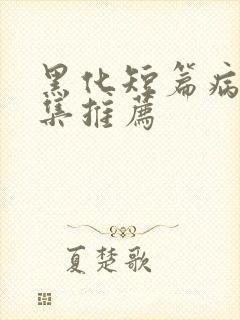 黑化短篇病
集推薦
夏楚歌